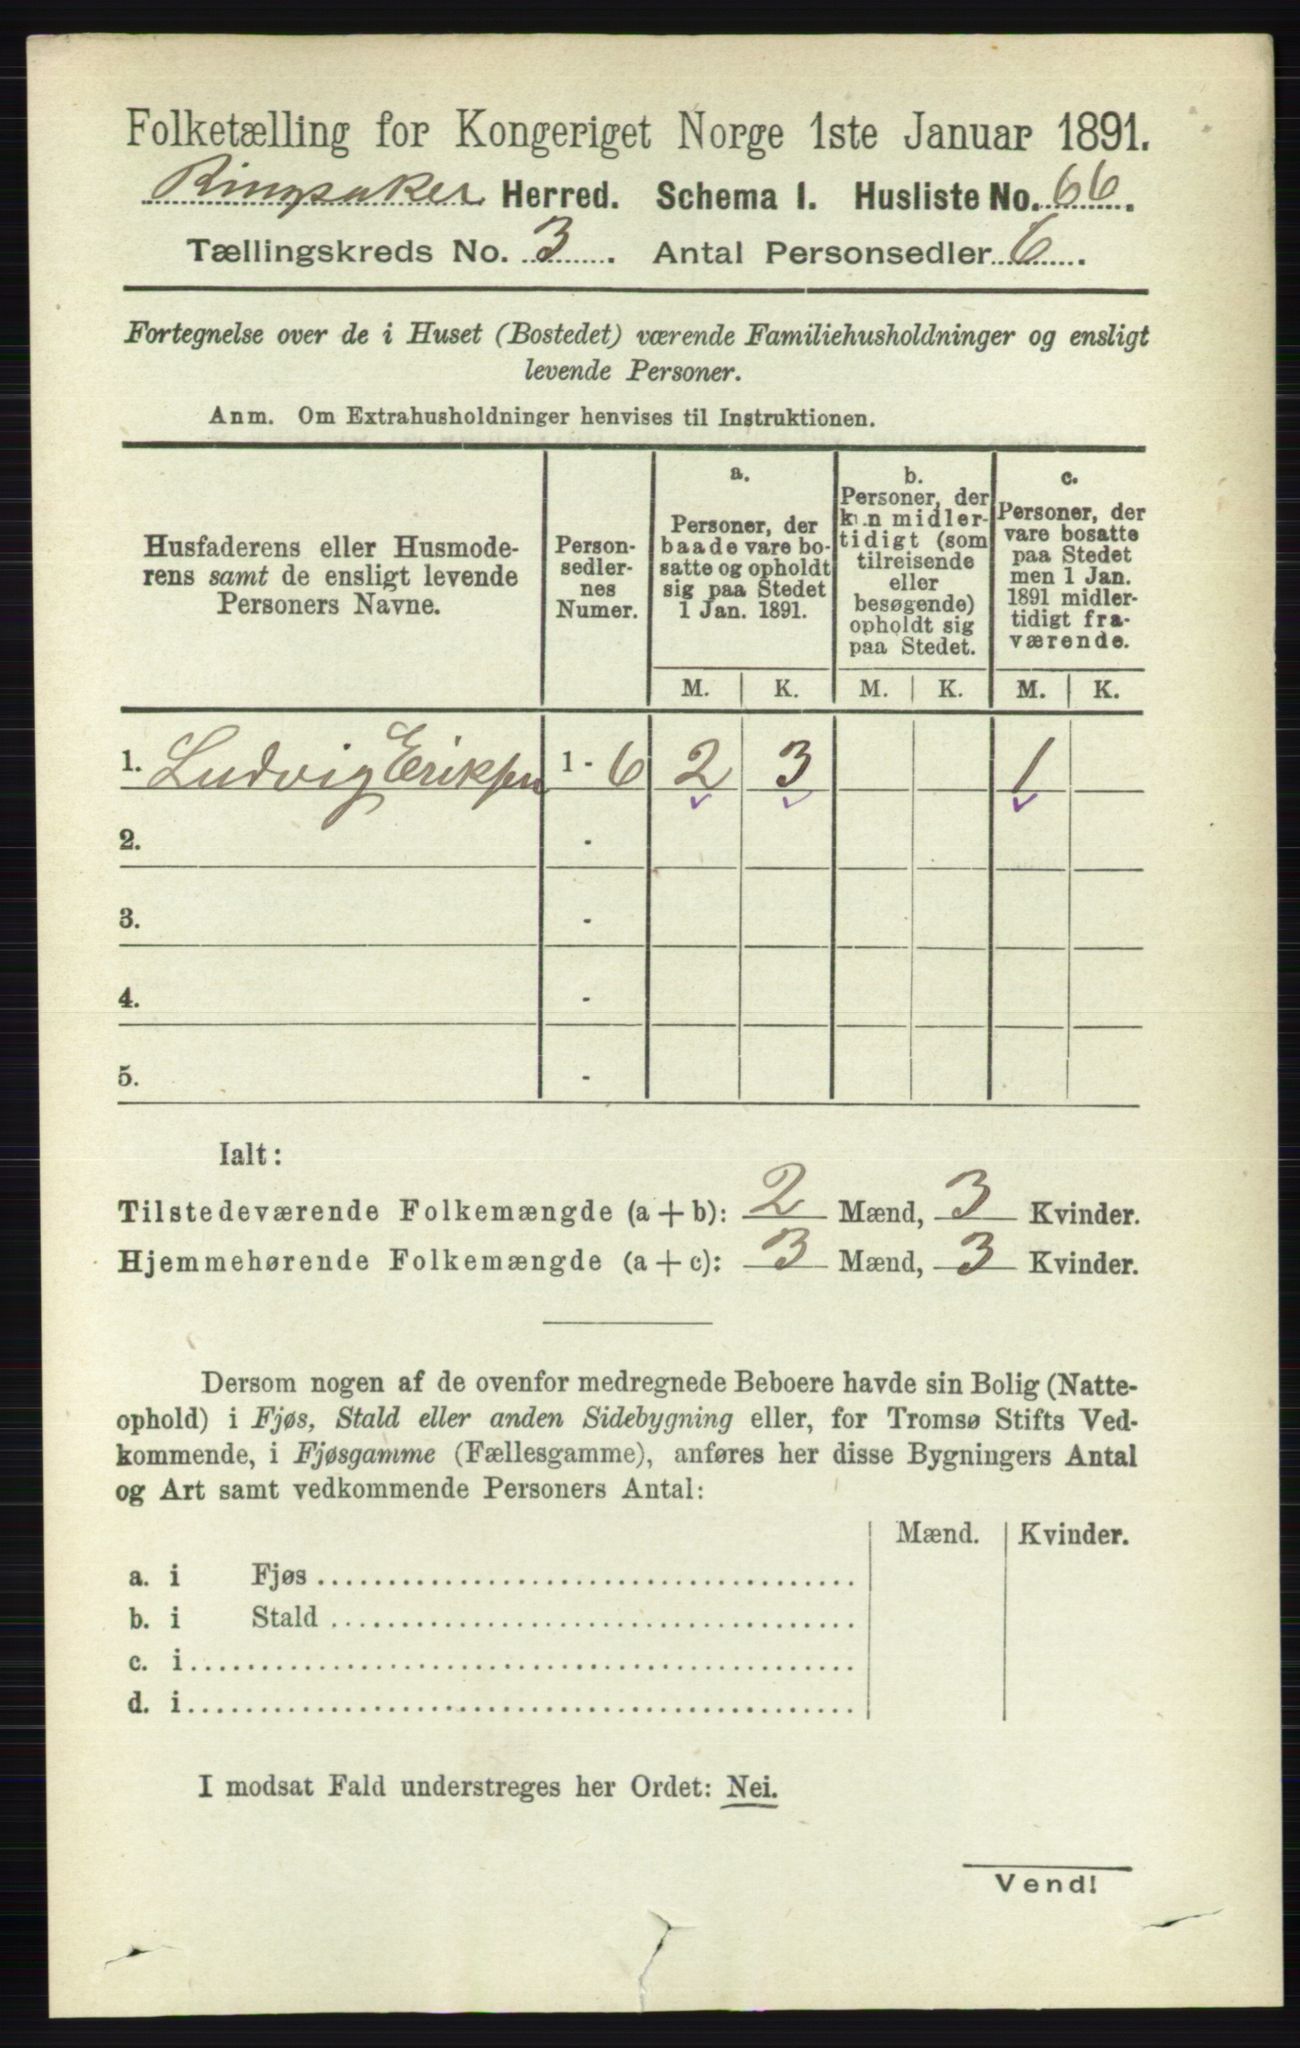 Folketælling for Kongeriget Norge 1ste Januar 1891.
Ringsaker Herred. Schema I. Husliste No. 66.
Tællingskreds No. 3. Antal Personsedler 6.
Fortegnelse over de i Huset (Bostedet) værende Familiehusholdninger og ensligt
levende Personer.
Anm. Om Extrahusholdninger henvises til Instruktionen.
Husfaderens eller Husmode-
rens samt de ensligt levende
Personers Navne.
Person-
sedler-
nes
Numer.
a.
Personer, der
baade vare bo-
satte og opholdt
sig paa Stedet
1 Jan. 1891.
b.
Personer, der
kun midler-
tidigt (som
tilreisende
eller
besøgende)
opholdt sig
paa Stedet.
c.
Personer, der
vare bosatte
paa Stedet
men 1 Jan.
1891 midler-
tidigt fra-
værende.
M. K. M. K. M. K.
1. Ludvig Eriksen 1 - 6 2 3 1
2. -
3. -
4. -
5. -
Ialt:
Tilstedeværende Folkemængde (a + b): 2 Mænd, 3 Kvinder.
Hjemmehørende Folkemængde (a + c): 3 Mænd, 3 Kvinder.
Dersom nogen af de ovenfor medregnede Beboere havde sin Bolig (Natte-
ophold) i Fjøs, Stald eller anden Sidebygning eller, for Tromsø Stifts Ved-
kommende, i Fjøsgamme (Fællesgamme), anføres her disse Bygningers Antal
og Art samt vedkommende Personers Antal:
Mænd. Kvinder.
a. i Fjøs
b. i Stald
c. i
d. i
I modsat Fald understreges her Ordet: Nei.
Vend!